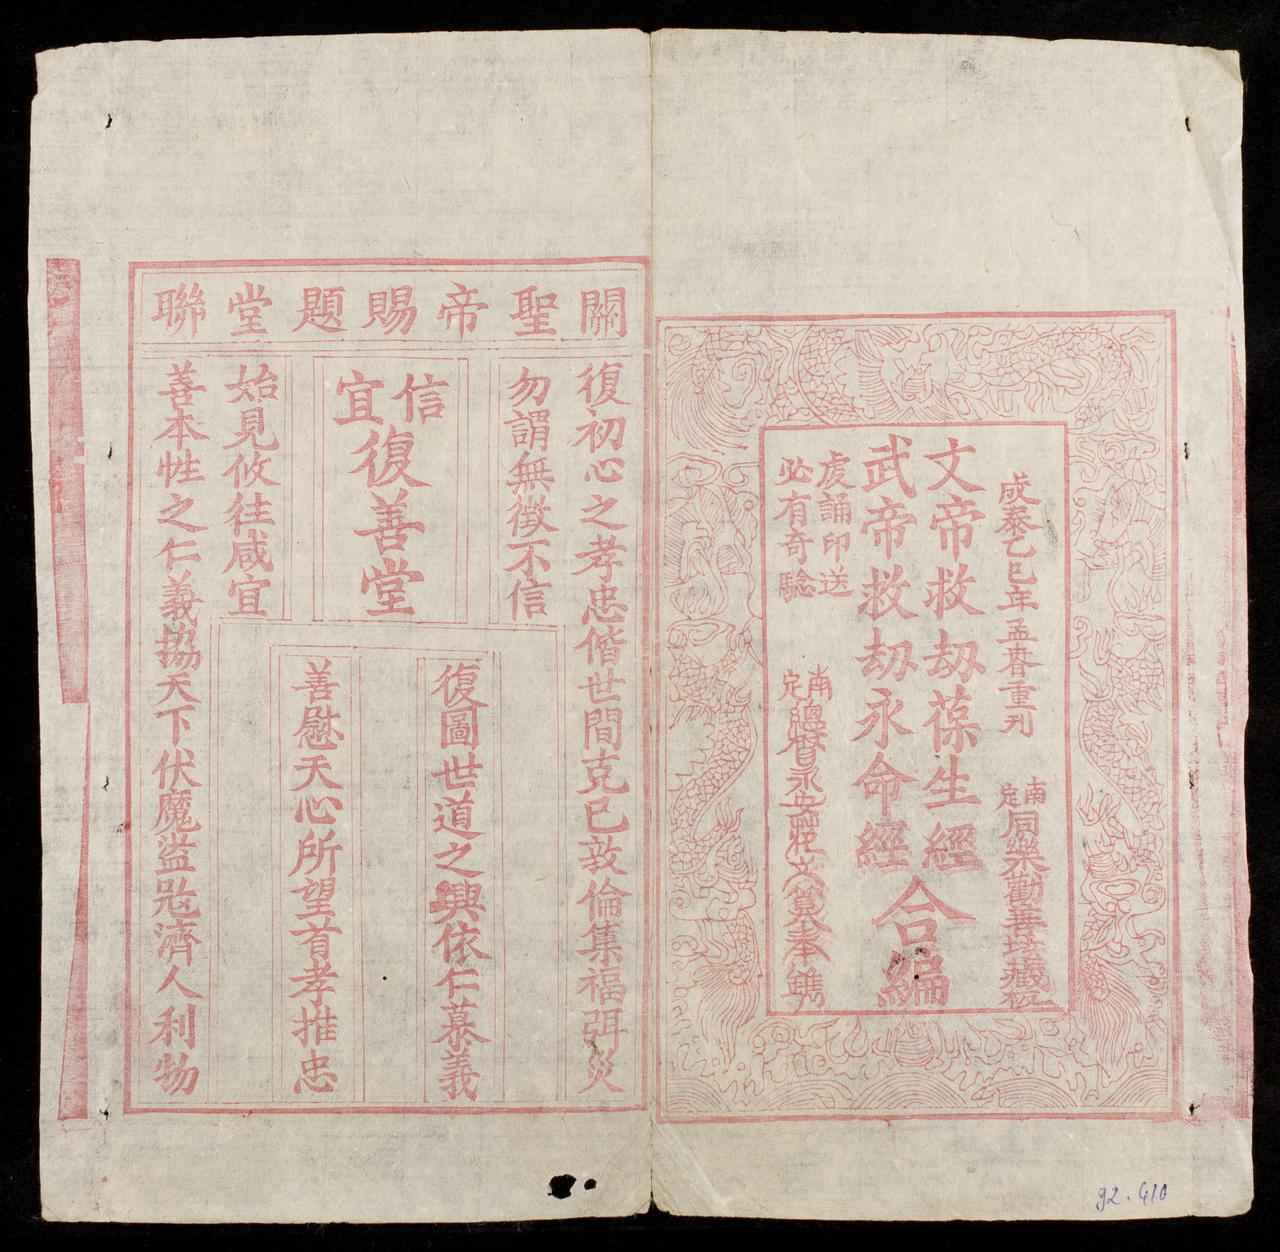 成泰乙巳年孟春重刊
南定同樂勸善壇藏板
文帝救刼葆生經
武帝救刼永命經
合編
虔誦印送
必有奇驗
南定
永安
奉鐫
關聖帝賜題堂聯
復初心之孝忠偕世間克已敦倫集福弭災
勿謂無徵不信
信宜
復善堂
始見攸往咸宜
善本性之仁義協天下伏魔盪寇濟人利物
復圖世道之興依仁慕義
善慰天心所望首孝推忠
92.410